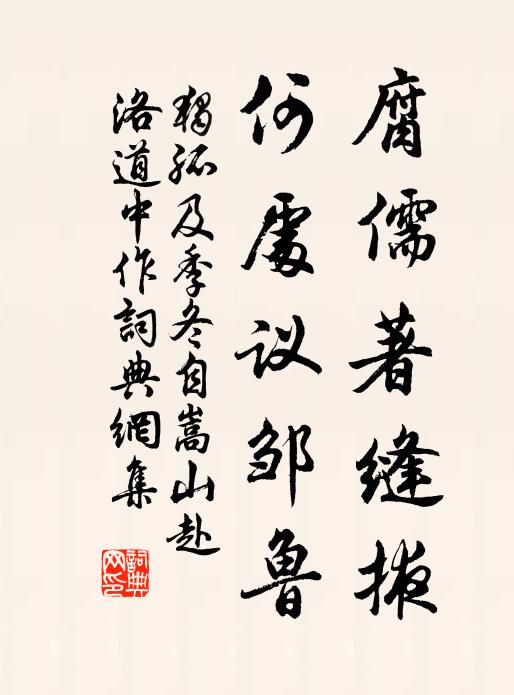 腐儒著缝掖
何處议邹鲁
獨孤及季冬自嵩山赴
洛道中作詞典網集
詞典
网印